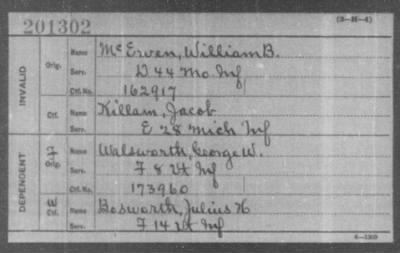 201302 (3-II-4)
INVALID Orig. Name McEwen, William B.
Serv. D 44 Mo Inf
Ctf. No. 162917
Ctf. Name Killam, Jacob
Serv. E 28 Mich Inf
DEPENDENT Orig. Name Walsworth, George W.
Serv. F 8 Vt Inf
Ctf. No. 173960
W Ctf. Name Bosworth, Julius H
Serv. F 14 Vt Inf